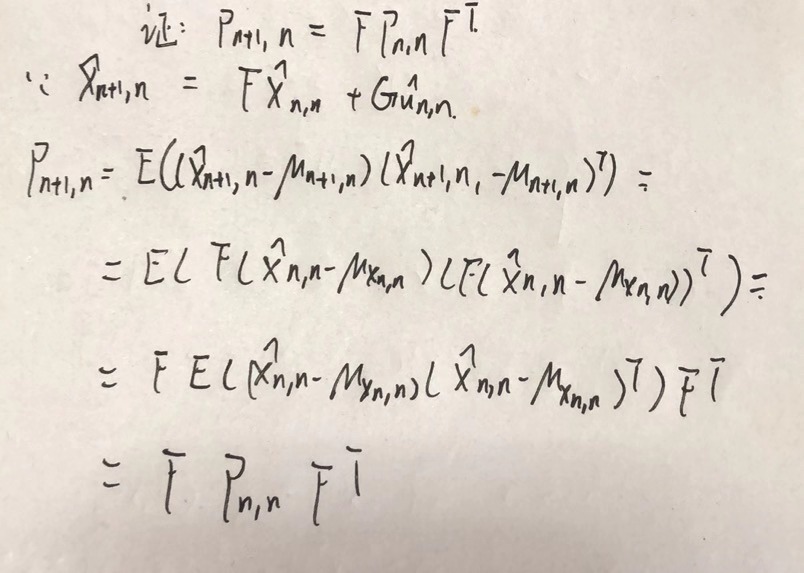 证: P_{n+1,n} = F P_{n,n} F^T.
∵ x̂_{n+1,n} = F x̂_{n,n} + G û_{n,n}.
P_{n+1,n} = E((x̂_{n+1,n} - μ_{n+1,n}) (x̂_{n+1,n,} - μ_{n+1,n})^T) =
= E( F( x̂_{n,n} - μ_{x_{n,n}} ) (F( x̂_{n,n} - μ_{x_{n,n}}))^T ) =
= F E( (x̂_{n,n} - μ_{x_{n,n}}) ( x̂_{n,n} - μ_{x_{n,n}} )^T ) F^T
= F P_{n,n} F^T